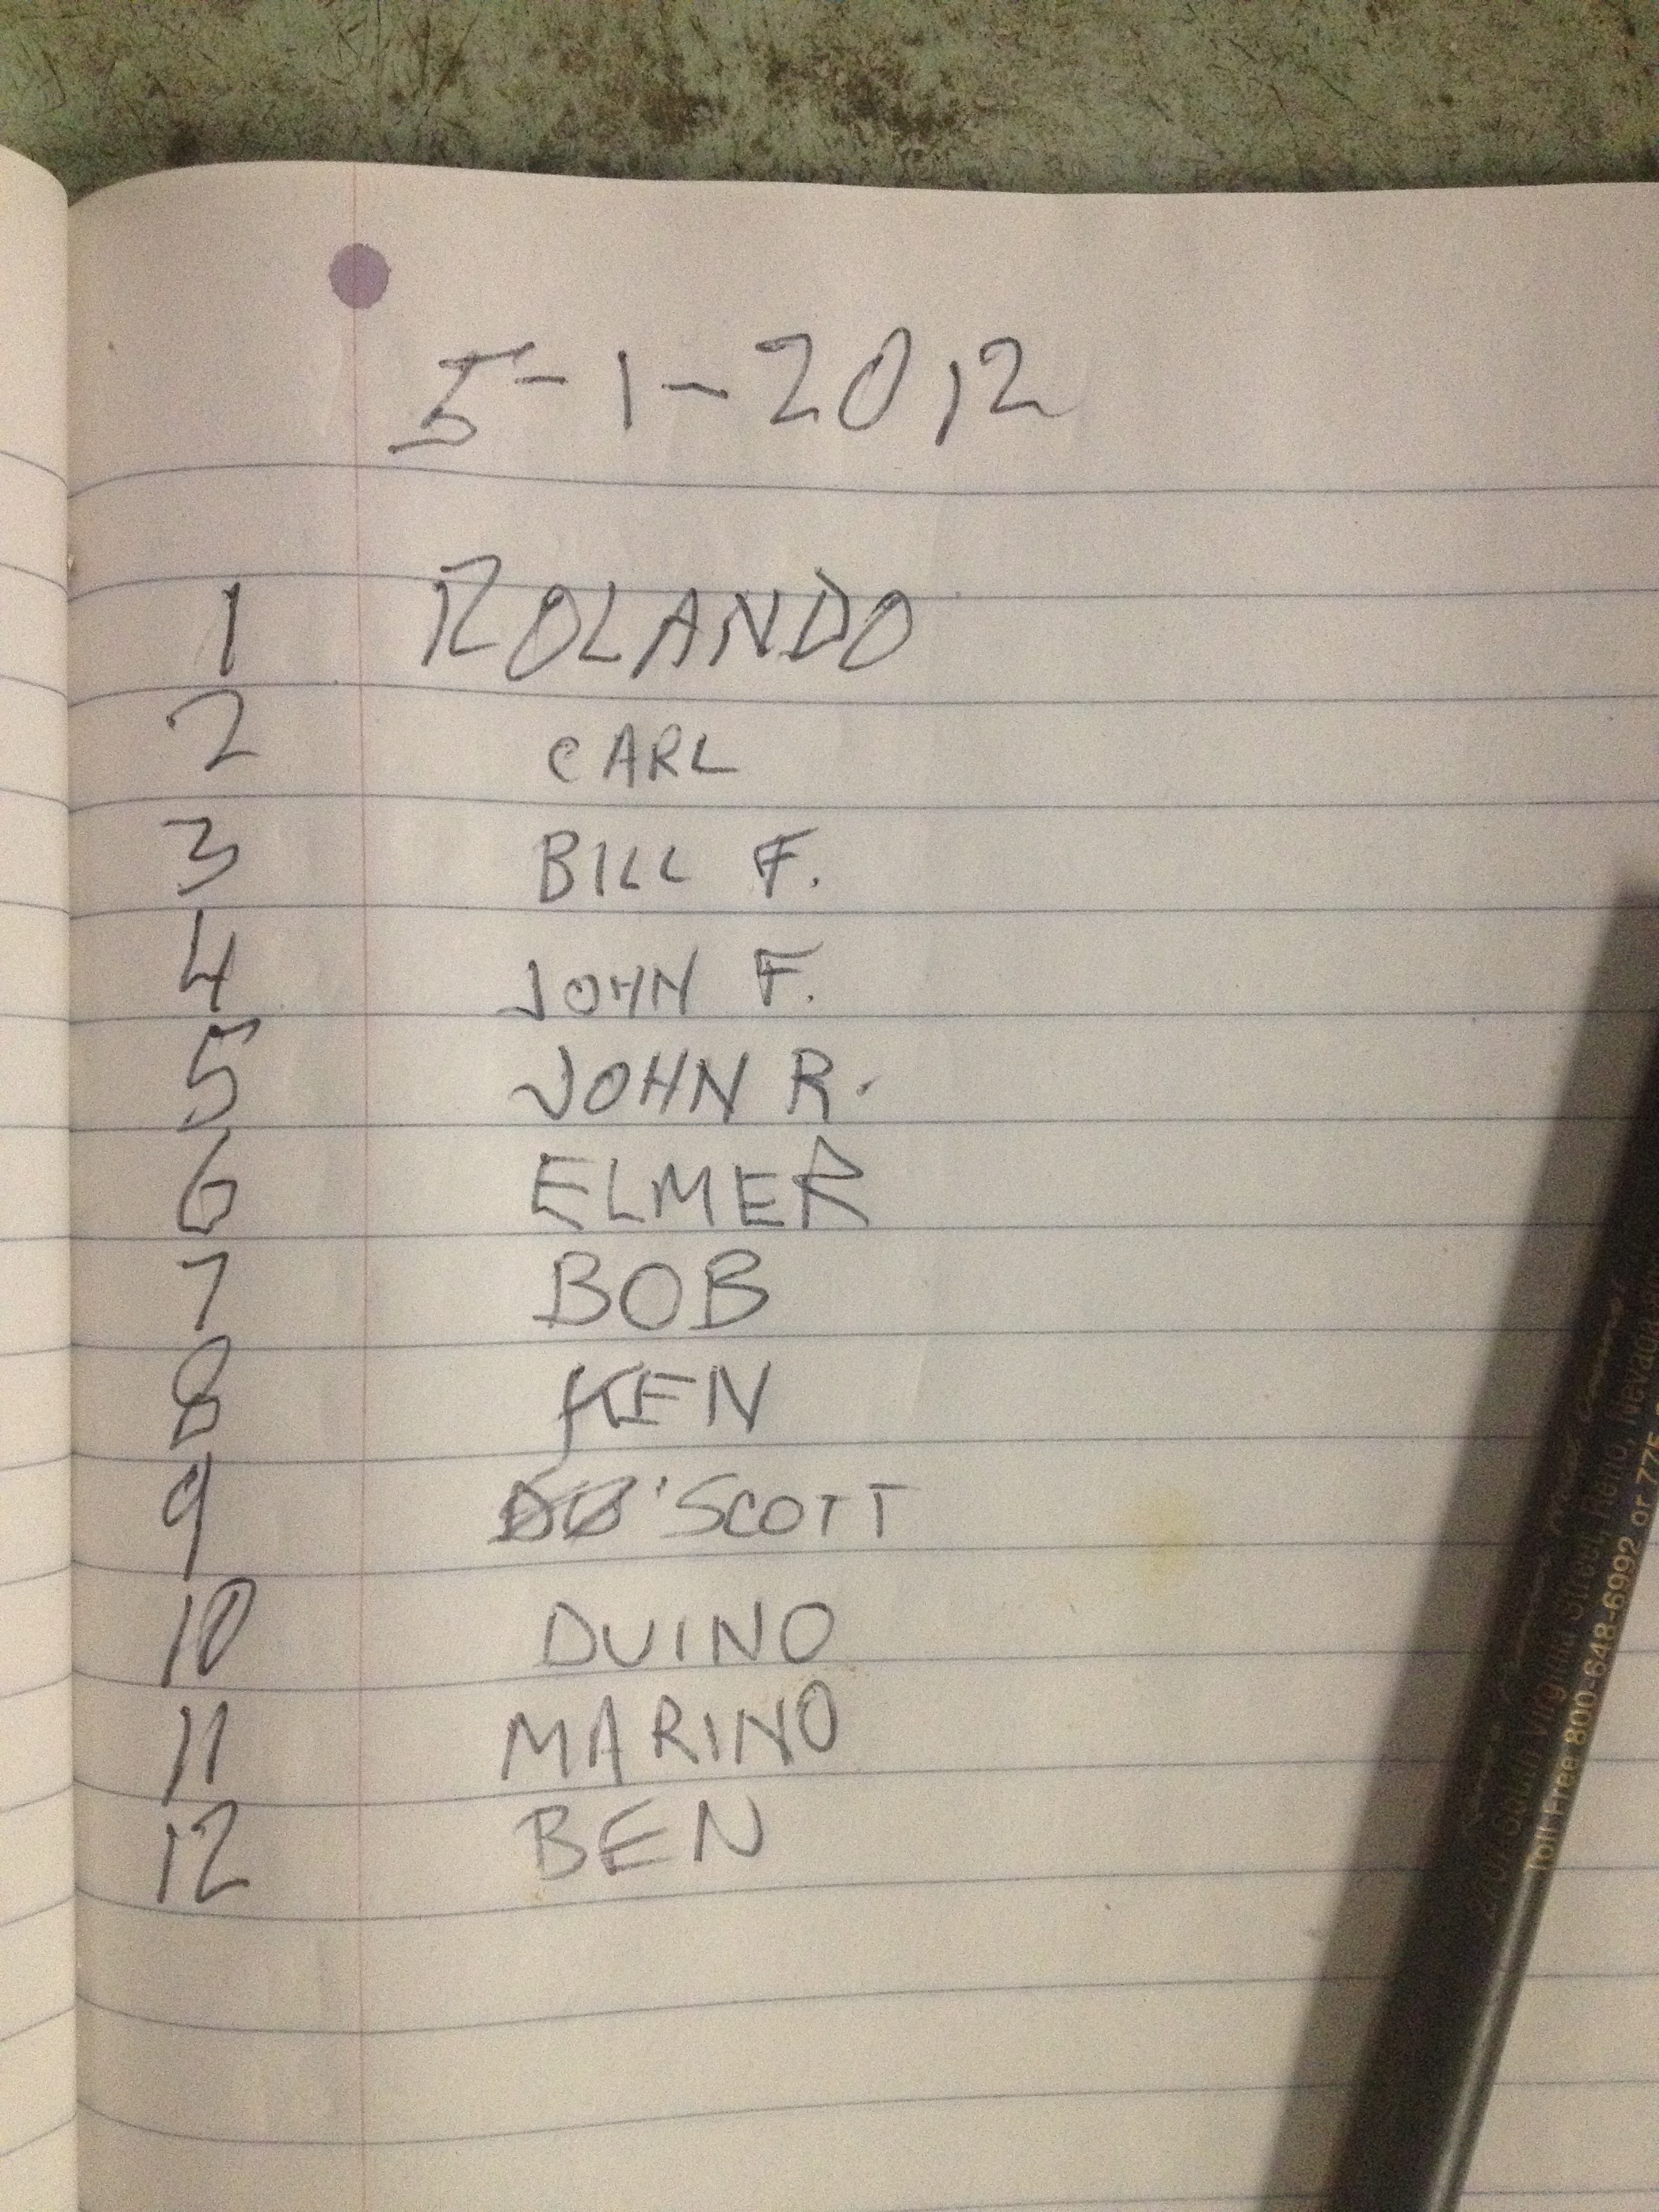 5-1-2012
1 ROLANDO
2 CARL
3 BILL F.
4 JOHN F.
5 JOHN R.
6 ELMER
7 BOB
8 KEN
9 SCOTT
10 DUINO
11 MARINO
12 BEN
Virginia Street, Reno, Nevada
Toll Free 800-648-6992 or 775